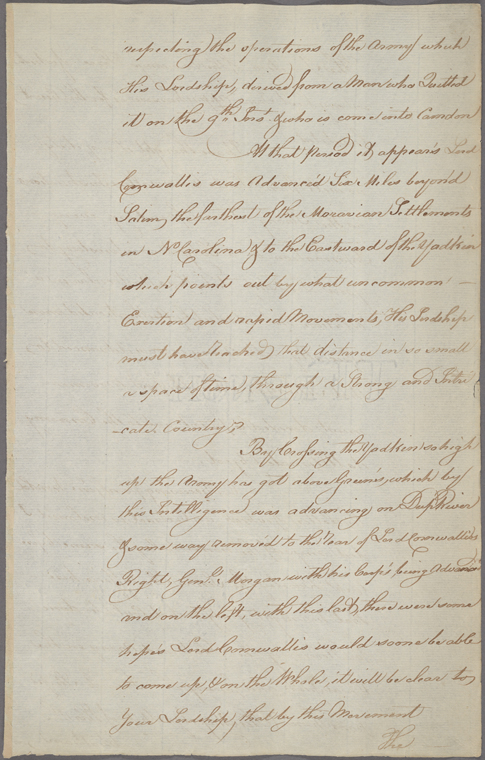 respecting the operations of the Army which
His Lordship, derived from a Man who Quitted
it on the 9th. Inst. & who is come into Camden
At that Period it appears Lord
Cornwallis was Advanced Six Miles beyond
Salem, the furthest of the Moravian Settlements
in No. Carolina & to the Eastward of the Yadkin
which points out by what uncommon —
Exertion and rapid Movements, His Lordship
must have reached, that distance in so small
a space of time, through a Strong and Intri
-cate Country.
By Crossing the Yadkin so high
up the Army has got above Greene, which by
this Intelligence was advancing on Deep River
& some way removed to the Rear of Lord Cornwallis's
Right, Genl. Morgan with his Corps, being Advanced
and on the left, with this last, there were some
hopes Lord Cornwallis would soone be able
to come up, & on the Whole, it will be clear to
Your Lordship, that by this Movement
The